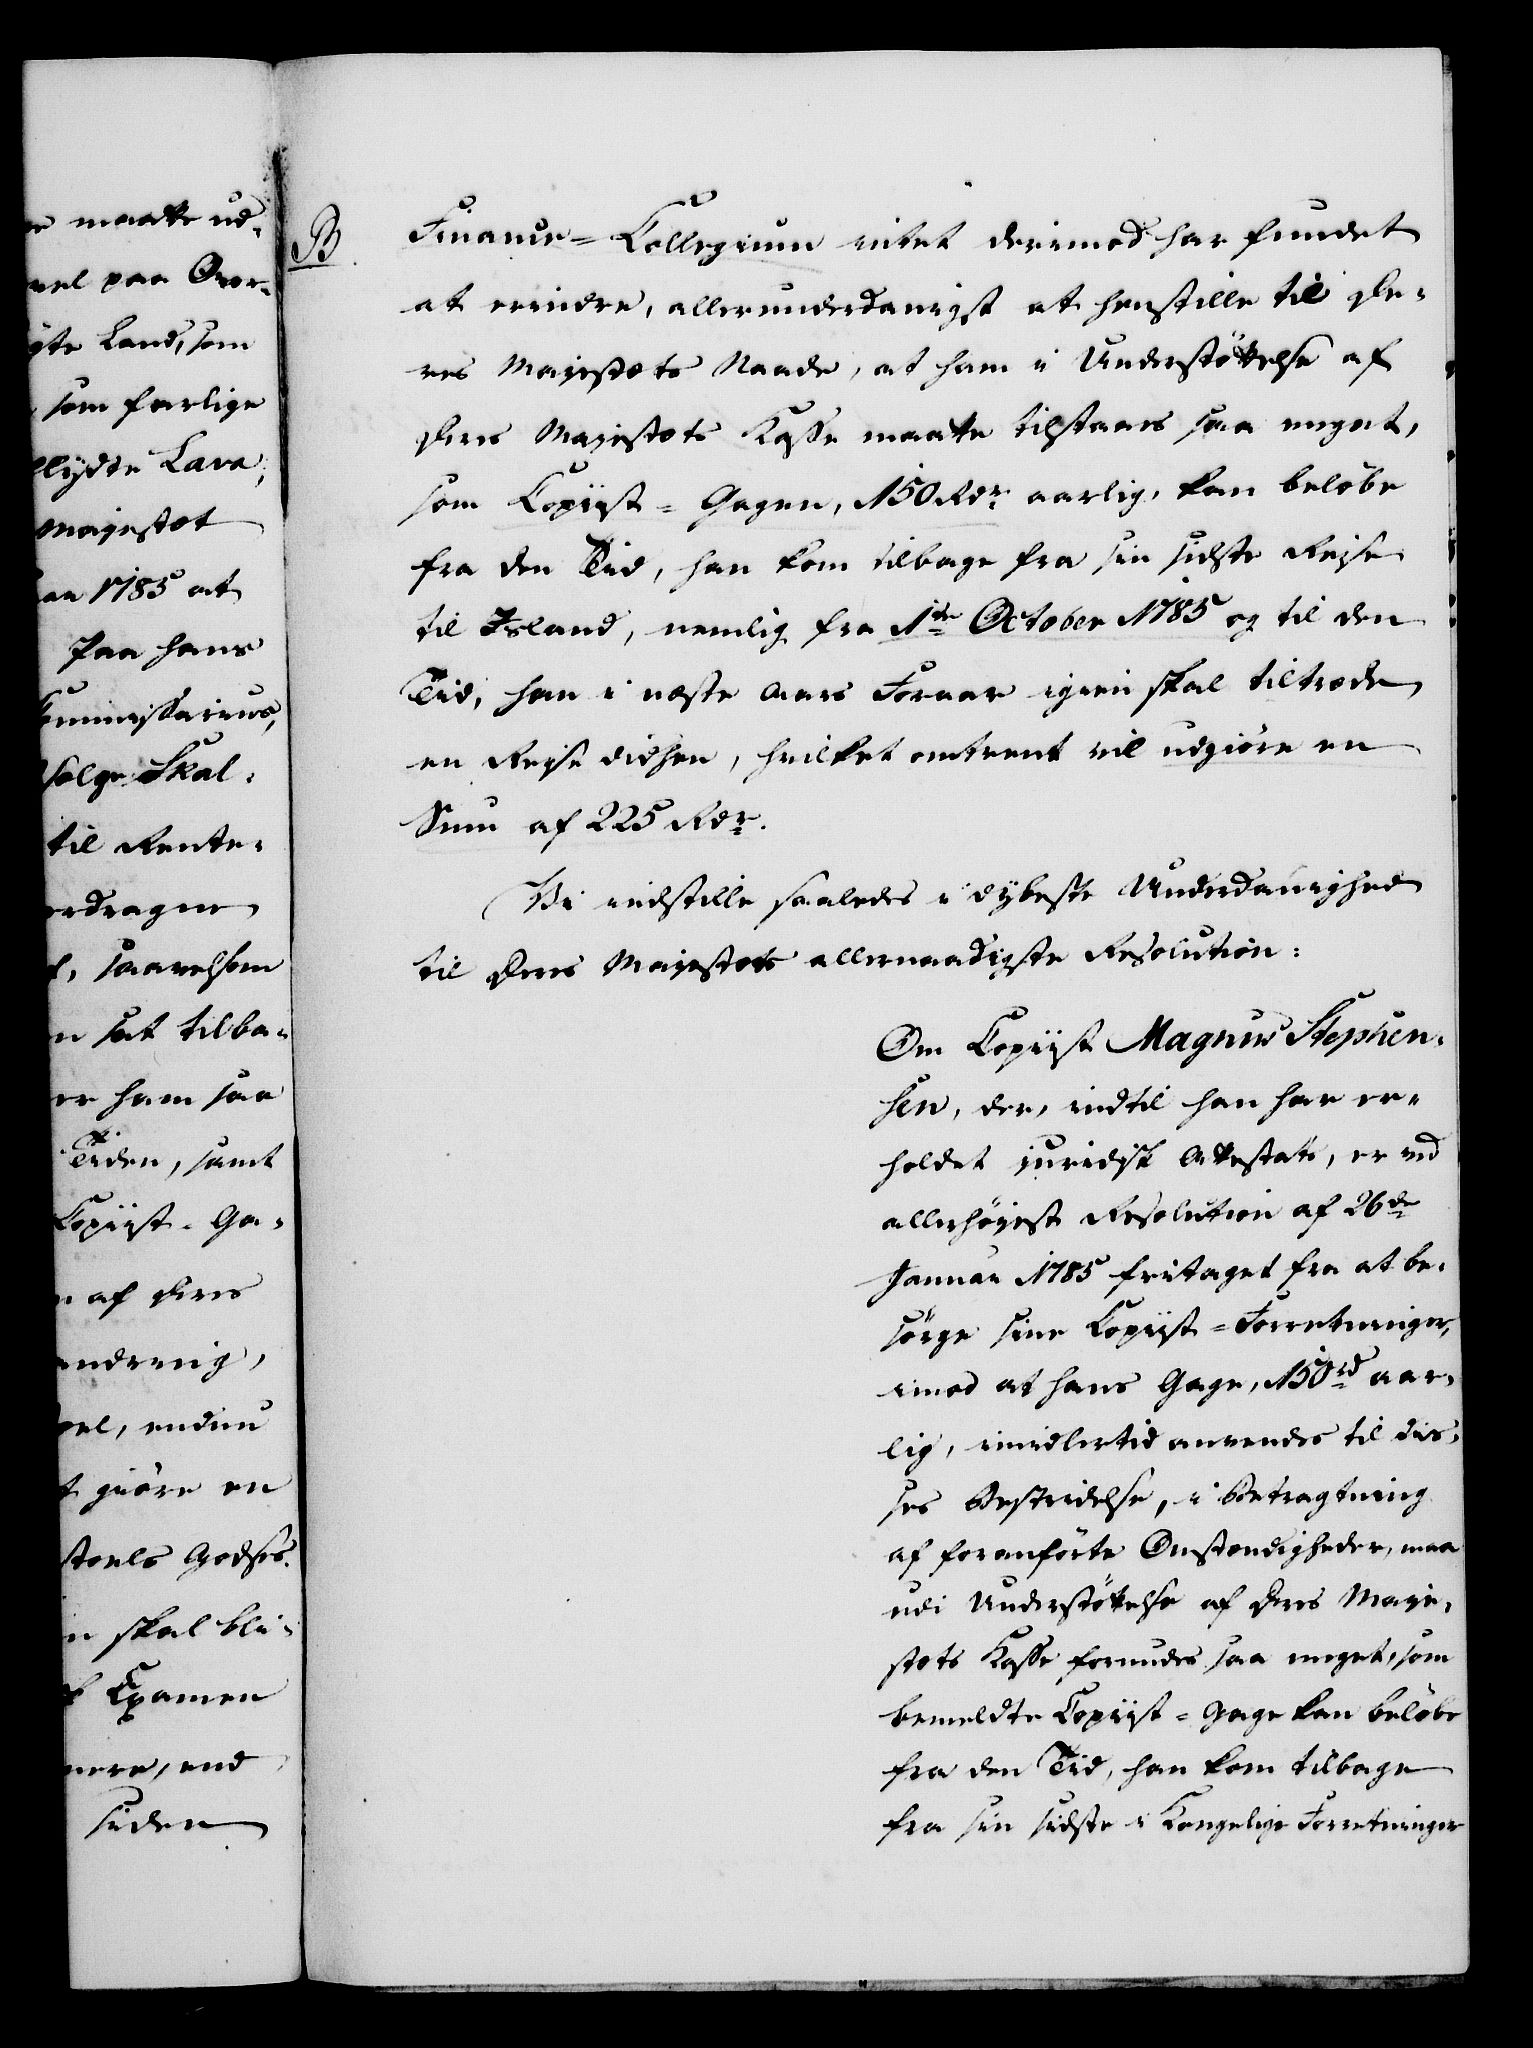 e maatte ud-
vel paa Over-
gte Land, som
som farlige
flydte Lava,
Majestæt
1785 at
Paa hans
Kommissarius,
følge Skal-
til Rente-
erdragne
saavelsom
sat tilba-
er ham saa
Tiden, samt
Copiist-Ga-
af Deres
endnu
giøre en
stoels Godses.
skal bli-
Examen
mere, end
siden
B
Finance-Collegium intet derimod har fundet
at erindre, allerunderdanigst at henstille til De-
res Majestæts Naade, at ham i Understøttelse af
Deres Majestæts Kasse maatte tilstaaes saa meget,
som Copiist-Gagen, 150 Rdr aarlig, kan beløbe
fra den Tid, han kom tilbage fra sin sidste Rejse
til Island, nemlig fra 1ste October 1785 og til den
Tid, han i næste Aars Foraar igien skal tiltræde
en Rejse didhen, hvilket omtrent vil udgiøre en
Sum af 225 Rdr.
Vi indstille saaledes i dybeste Underdanighed
til Deres Majestæts allernaadigste Resolution:
Om Copiist Magnus Stephen-
sen, der, indtil han har er-
holdet juridisk Attestats, er ved
allerhøjest Resolution af 26de
Januar 1785 fritaget fra at be-
sørge sine Copiist-Forretninger,
imod at hans Gage, 150 rd aar-
lig, imidlertid anvendes til dis-
ses Bestridelse, i Betragtning
af foranførte Omstændigheder, maa
udi Understøttelse af Deres Maje-
stæts Kasse forundes saa meget, som
bemeldte Copiist-Gage kan beløbe
fra den Tid, han kom tilbage
fra sin sidste i Kongelige Forretninger